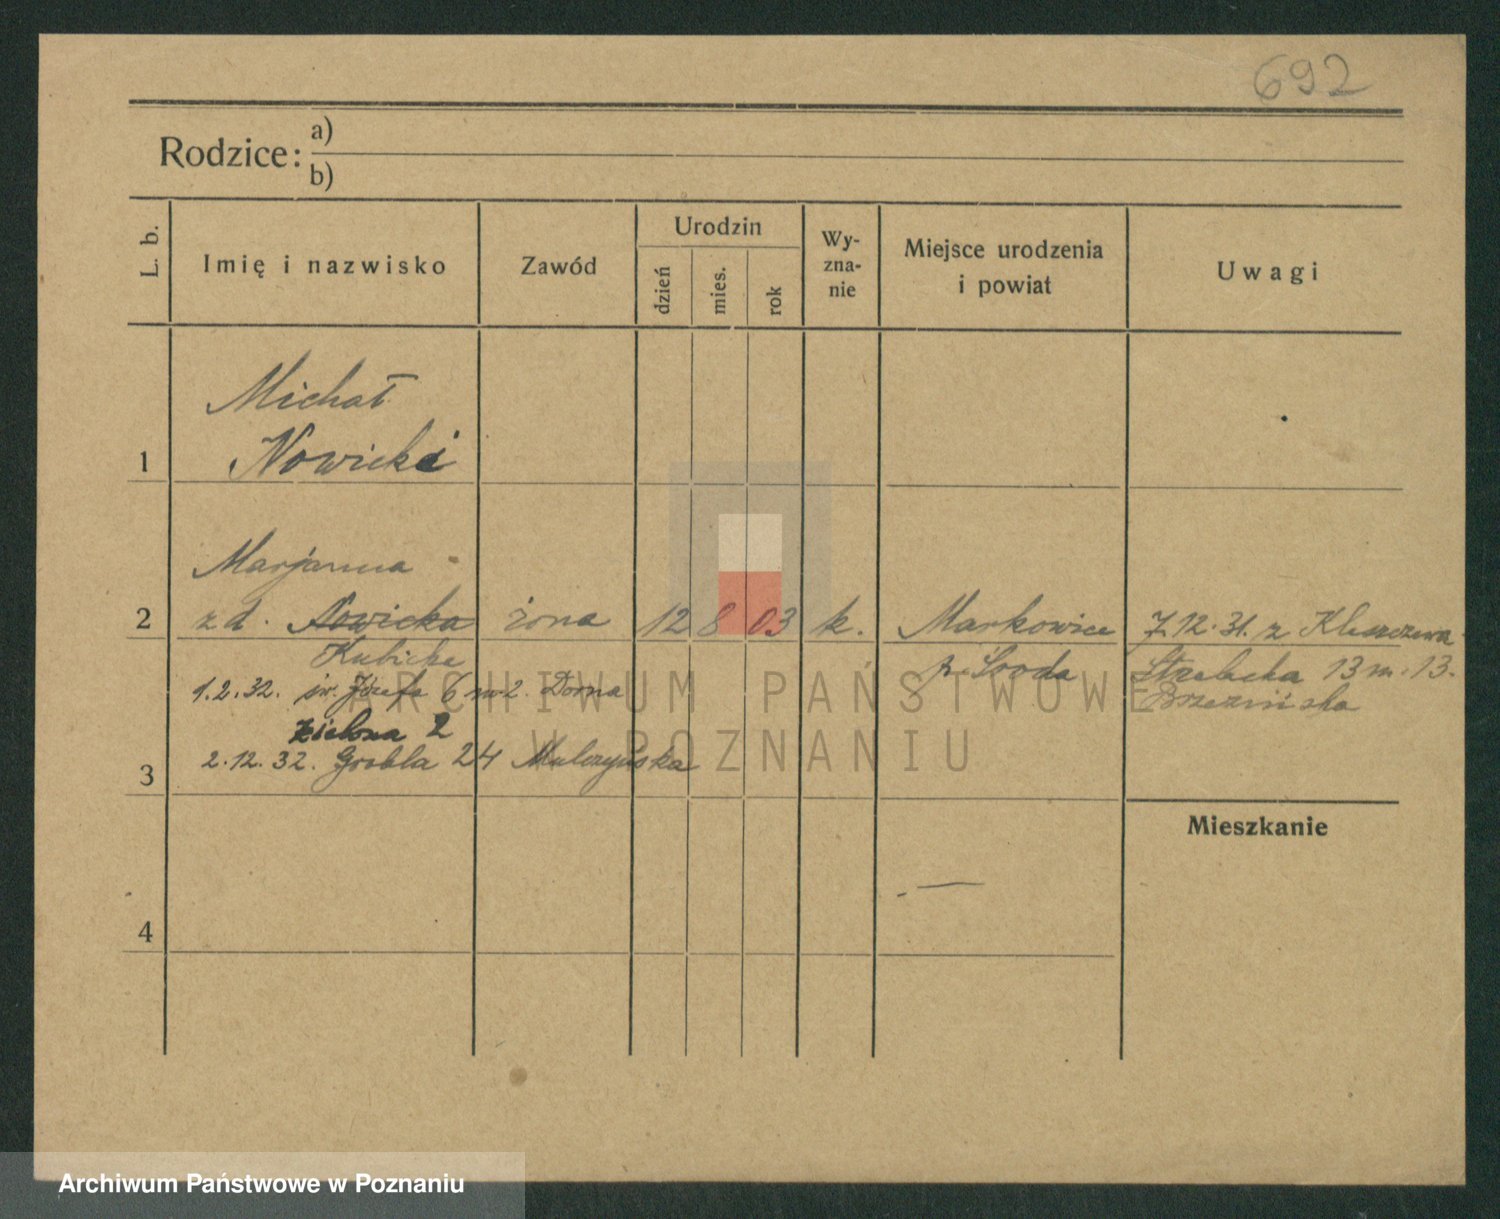 692
Rodzice: a)
b)
L. b.
Imię i nazwisko
Zawód
Urodzin
dzień
mies.
rok
Wy-
zna-
nie
Miejsce urodzenia
i powiat
Uwagi
Michał
1 Nowicki
Marjanna
2 z d. Nowicka żona 12 8 03 k. Markowice 7.12.31. z Kleszczewa
Kubicka p. Środa Strzelecka 13 m. 13.
1.2.32. św. Józefa 6 m 2. Dorna Brzezińska
Zielona 2
3 2.12.32. Grobla 24
Mieszkanie
4
ARCHIWUM PAŃSTWOWE
W POZNANIU
Archiwum Państwowe w Poznaniu